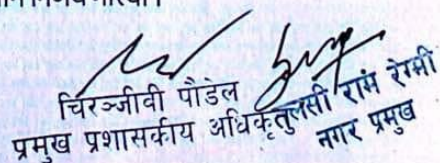 चिरञ्जीवी पौडेल
प्रमुख प्रशासकीय अधिकृत
तुलसी राम रेग्मी
नगर प्रमुख